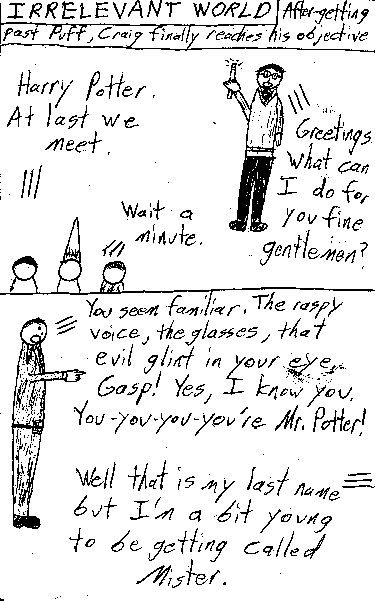 IRRELEVANT WORLD
After getting
past Puff, Craig finally reaches his objective
Harry Potter.
At last we
meet.
Greetings.
What can
I do for
you fine
gentlemen?
Wait a
minute.
You seem familiar. The raspy
voice, the glasses, that
evil glint in your eye.
Gasp! Yes, I know you.
You-you-you-you're Mr. Potter!
Well that is my last name
but I'm a bit young
to be getting called
Mister.